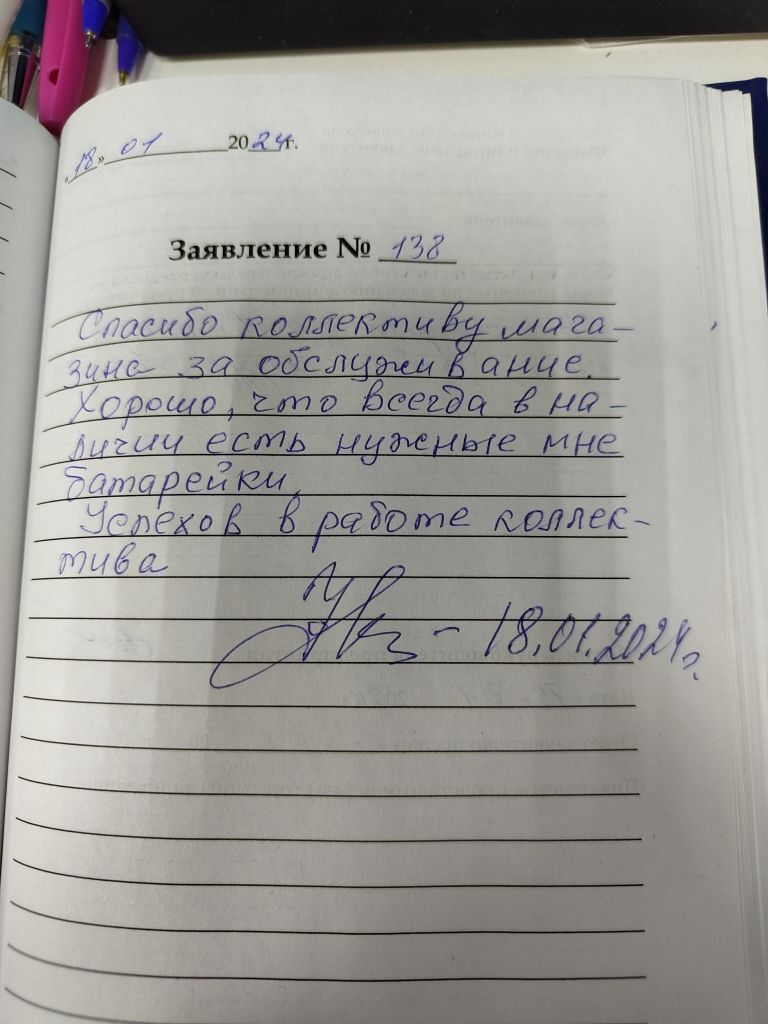 «18» 01 2024г.
Заявление № 138
Спасибо коллективу мага-
зина за обслуживание.
Хорошо, что всегда в на-
личии есть нужные мне
батарейки.
Успехов в работе коллек-
тива
- 18.01.2024г.